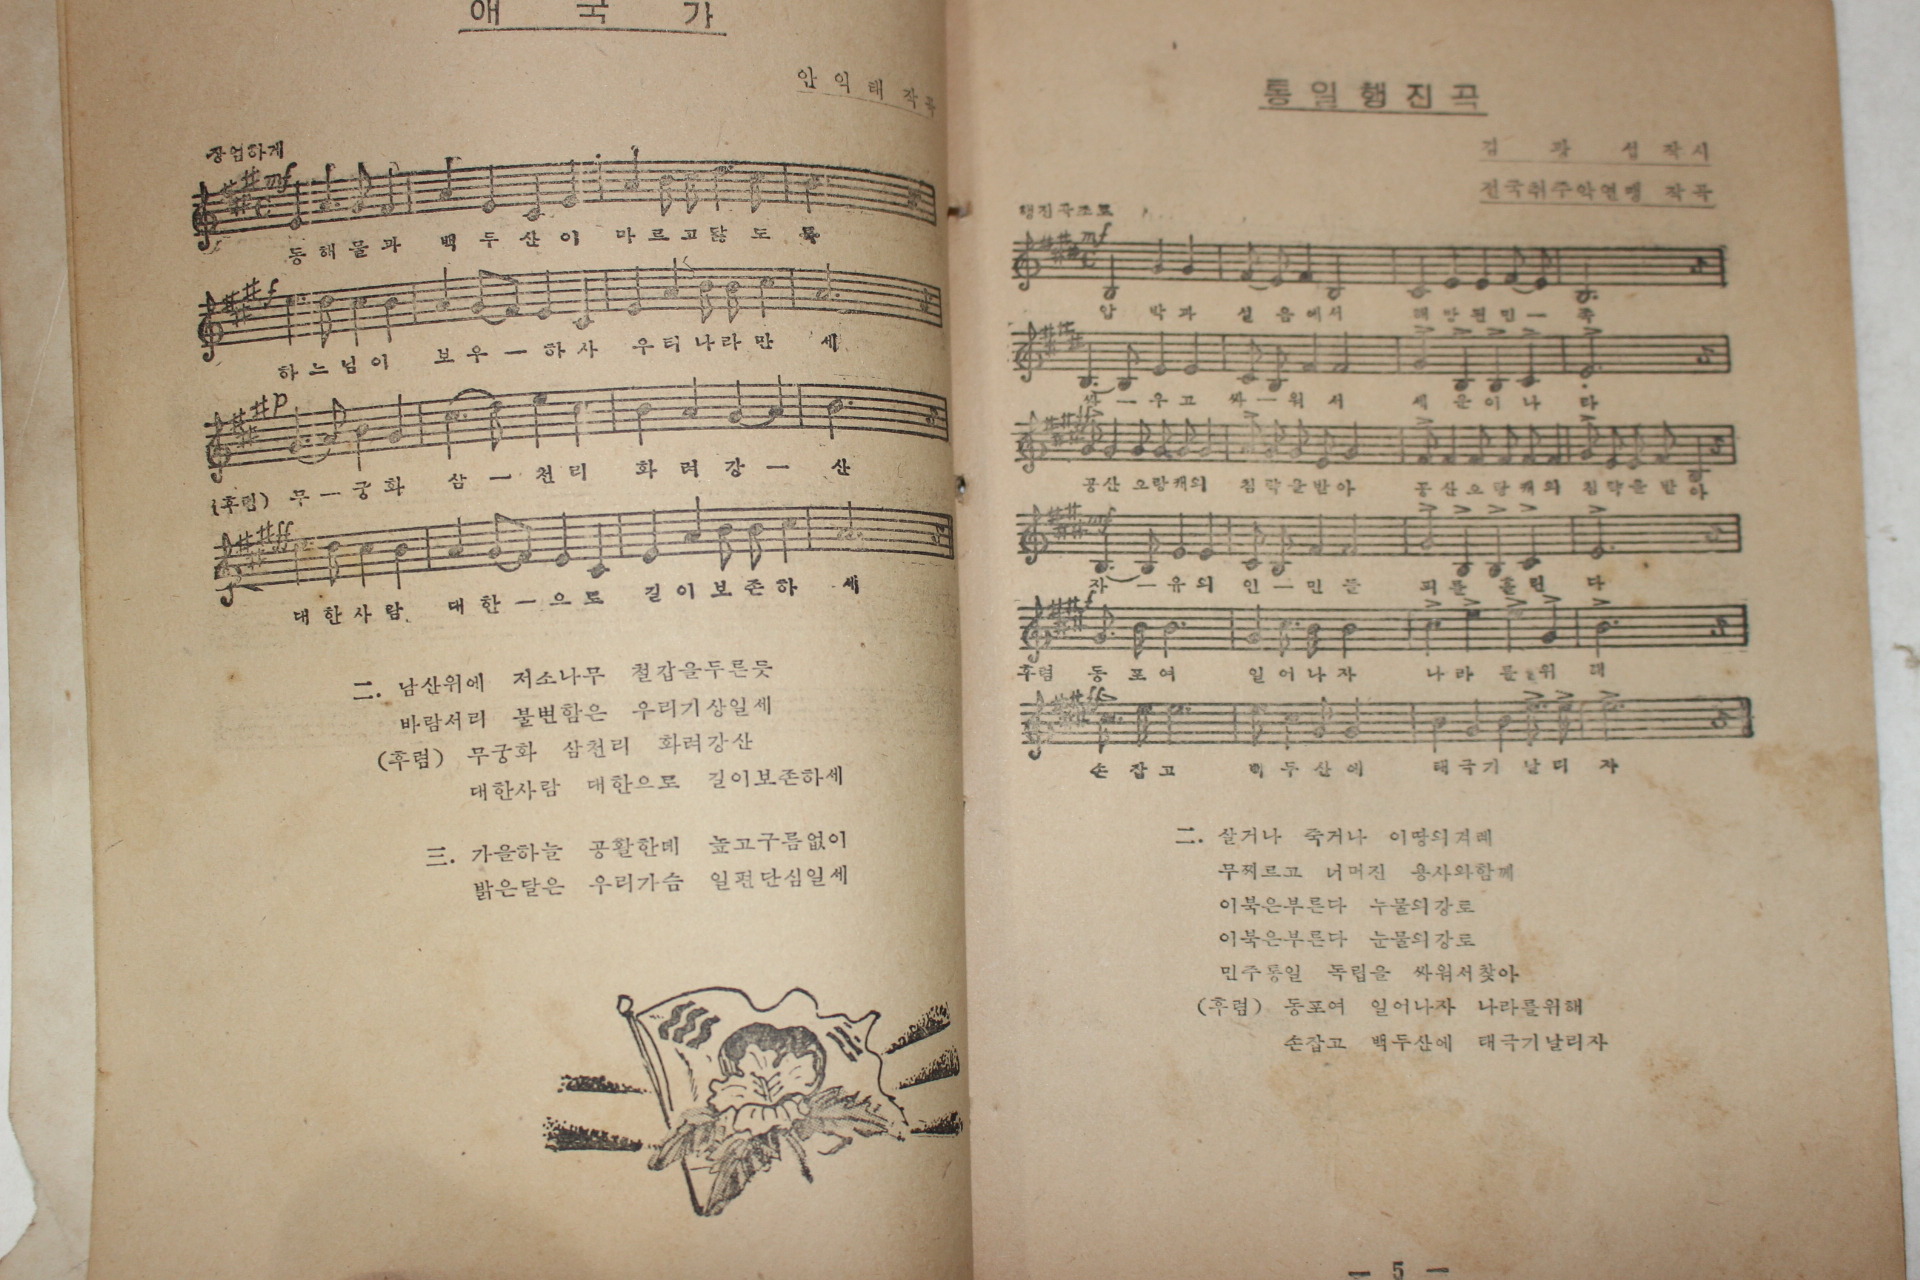 애 국 가
안 익 태 작 곡
장엄하게
mf
동 해 물 과 백 두 산 이 마 르 고 닳 도 록
f
하 느 님 이 보 우 ー 하 사 우 리 나 라 만 세
p
(후렴) 무 ー 궁 화 삼 ー 천 리 화 려 강 ー 산
ff
대 한 사 람 대 한 ー 으 로 길 이 보 존 하 세
二. 남산위에 저소나무 철갑을두른듯
바람서리 불변함은 우리기상일세
(후렴) 무궁화 삼천리 화려강산
대한사람 대한으로 길이보존하세
三. 가을하늘 공활한데 높고구름없이
밝은달은 우리가슴 일편단심일세
통일행진곡
김 광 섭 작 시
전국취주악연맹 작곡
행진곡조로
mf
압 박 과 설 음 에 서 해 방 된 민 ー 족
싸 ー 우 고 싸 ー 워 서 세 운 이 나 라
공산 오랑캐의 침략을받아 공산오랑캐의 침략을받아
mf
자 ー 유 의 인 ー 민 들 피 를 흘 린 다
f
후렴 동 포 여 일 어 나 자 나 라 를 위 해
ff
손 잡 고 백 두 산 에 태 극 기 날 리 자
二. 살거나 죽거나 이땅의겨레
무찌르고 너머진 용사와함께
이북은부른다 누물의강토
이북은부른다 눈물의강토
민주통일 독립을 싸워서찾아
(후렴) 동포여 일어나자 나라를위해
손잡고 백두산에 태극기날리자
— 5 —